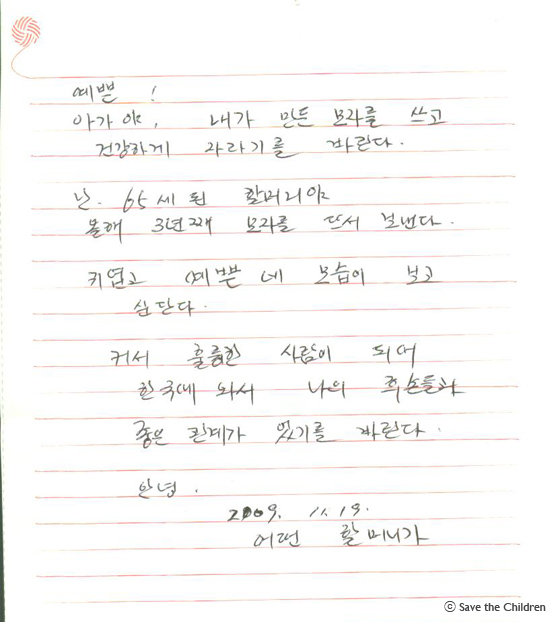 예쁜 !
아가야, 내가 만든 모자를 쓰고
건강하게 자라기를 바란다.
난. 65세 된 할머니야
올해 3년째 모자를 떠서 보낸다.
귀엽고 예쁜 네 모습이 보고
싶단다.
커서 훌륭한 사람이 되어
한국에 와서 나의 후손들과
좋은 관계가 있기를 바란다.
안녕.
2009. 11. 19.
어떤 할머니가
ⓒ Save the Children